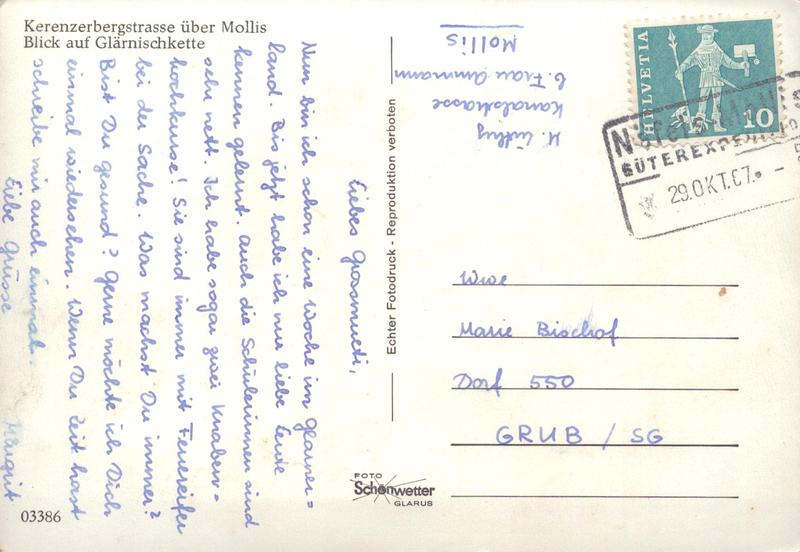 Kerenzerbergstrasse über Mollis
Blick auf Glärnischkette
Liebes Grossmueti,
Nun bin ich schon eine Woche im Glarner=
land. Bis jetzt habe ich nur liebe Leute
kennen gelernt. Auch die Schülerinnen sind
sehr nett. Ich habe sogar zwei Knaben-
kochkurse! Sie sind immer mit Feuereifer
bei der Sache. Was machst Du immer?
Bist Du gesund? Gerne möchte ich Dich
einmal wiedersehen. Wenn Du Zeit hast
schreibe mir auch einmal.
Liebe Grüsse
Margrit
03386
Echter Fotodruck - Reproduktion verboten
FOTO
Schönwetter
GLARUS
M.
Kanalstrasse
b. Frau Ammann
Mollis
HELVETIA
10
GÜTEREXPEDITION
29.OKT.67.-
Wwe
Marie Bischof
Dorf 550
GRUB / SG